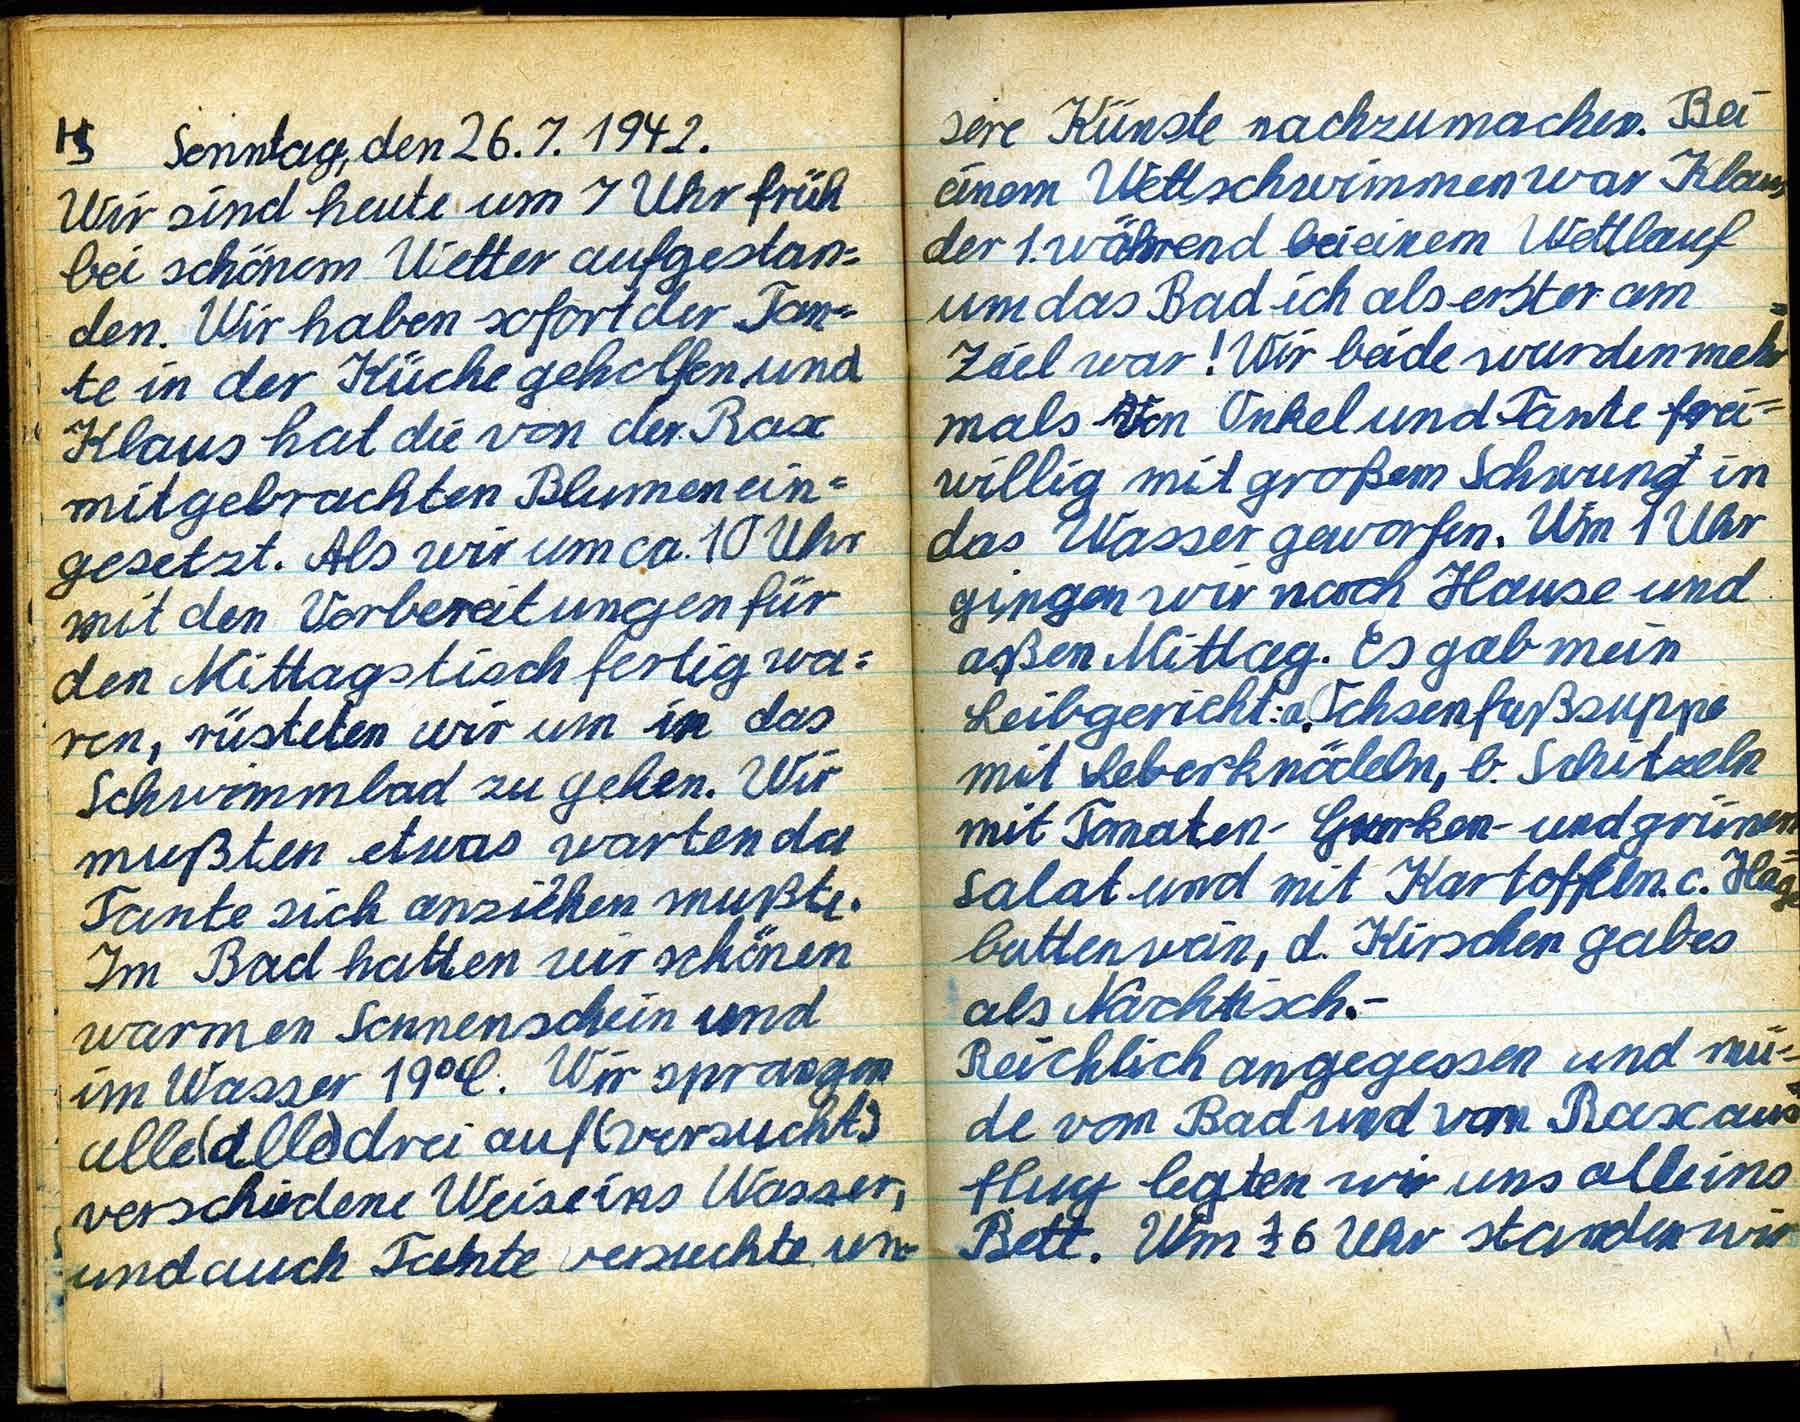 HS Sonntag, den 26.7.1942.
Wir sind heute um 7 Uhr früh
bei schönem Wetter aufgestan=
den. Wir haben sofort der Tan=
te in der Küche geholfen und
Klaus hat die von der Rax
mitgebrachten Blumen ein=
gesetzt. Als wir um ca. 10 Uhr
mit den Vorbereitungen für
den Mittagstisch fertig wa=
ren, rüsteten wir um in das
Schwimmbad zu gehen. Wir
mußten etwas warten da
Tante sich anziehen mußte.
Im Bad hatten wir schönen
warmen Sonnenschein und
im Wasser 19°C. Wir sprangen
alle (alle) drei auf (versucht)
verschiedene Weise ins Wasser,
und auch Tante versuchte un=
sere Künste nachzumachen. Bei
einem Wettschwimmen war Klaus
der 1. während bei einem Wettlauf
um das Bad ich als erster am
Ziel war! Wir beide wurden mehr=
mals von Onkel und Tante frei=
willig mit großem Schwung in
das Wasser geworfen. Um 1 Uhr
gingen wir nach Hause und
aßen Mittag. Es gab mein
Leibgericht: a. Ochsenfußsuppe
mit Leberknödeln, b. Schitzeln
mit Tomaten- Gurken- und grünen
Salat und mit Kartoffeln. c. Hage=
buttenwein, d. Kirschen gab es
als Nachtisch.-
Reichlich angegessen und mü=
de vom Bad und vom Raxaus=
flug legten wir uns alle ins
Bett. Um ½ 6 Uhr standen wir